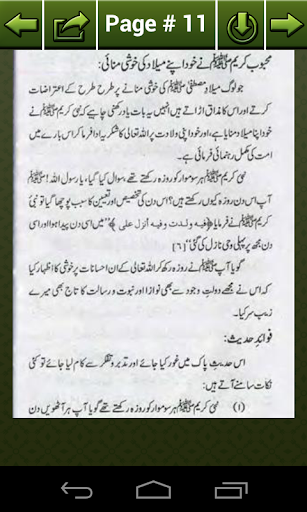 Page # 11
محبوب کریم ﷺ نے خود اپنے میلاد کی خوشی منائی:
جو لوگ میلاد مصطفٰی ﷺ کی خوشی منانے پر طرح طرح کے اعتراضات
کرتے اور اس کا مذاق اڑاتے ہیں انہیں یہ بات یاد رکھنی چاہیے کہ نبی کریم ﷺ نے
خود اپنا میلاد منایا ہے، اور خود اپنی ولادت پر اللہ تعالٰی کا شکریہ ادا فرما کر اس بارے میں
امت کی مکمل رہنمائی فرمائی ہے۔
نبی کریم ﷺ ہر سوموار کو روزہ رکھتے تھے، سوال کیا گیا، یا رسول اللہ! ﷺ
آپ اس دن روزہ کیوں رکھتے ہیں؟ اس دن کی تخصیص اور تعیین کا سبب پوچھا گیا تو نبی
کریم ﷺ نے فرمایا ﴿فیه ولدت وفیه أنزل علی﴾ "میں اسی دن پیدا ہوا اور اسی
دن مجھ پر پہلی وحی نازل کی گئی" [۶]
گویا آپ ﷺ نے روزہ رکھ کر اللہ تعالٰی کے ان احسانات پر خوشی کا اظہار کیا
کہ اس نے مجھے دولتِ وجود سے بھی نوازا اور نبوت و رسالت کا تاج بھی میرے
زیب سر کیا۔
فوائدِ حدیث:
اس حدیثِ پاک میں غور کیا جائے اور تدبر و تفکر سے کام لیا جائے تو کئی
نکات سامنے آتے ہیں:
(۱) نبی کریم ﷺ ہر سوموار کو روزہ رکھتے تھے گویا آپ ہر آٹھویں دن